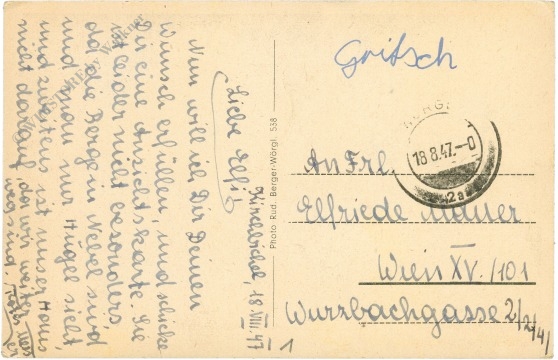 Kirchbichl, 18. VIII. 47
Liebe Elfi!
Nun will ich Dir Deinen
Wunsch erfüllen, und schicke
Dir eine Ansichtskarte. Sie
ist leider nicht besonders
da die Berge in Nebel sind,
und man nur Hügel sieht
und zweitens ist unser Haus
nicht darauf, da wir weiter
weg sind.
Photo Rud. Berger-Wörgl. 538
Gritsch
18.8.47.-0
2a
An Frl.
Elfriede
Wien XV./101
Wurzbachgasse 2/2/41
1